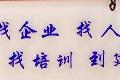 找企业 找人
找培训 到